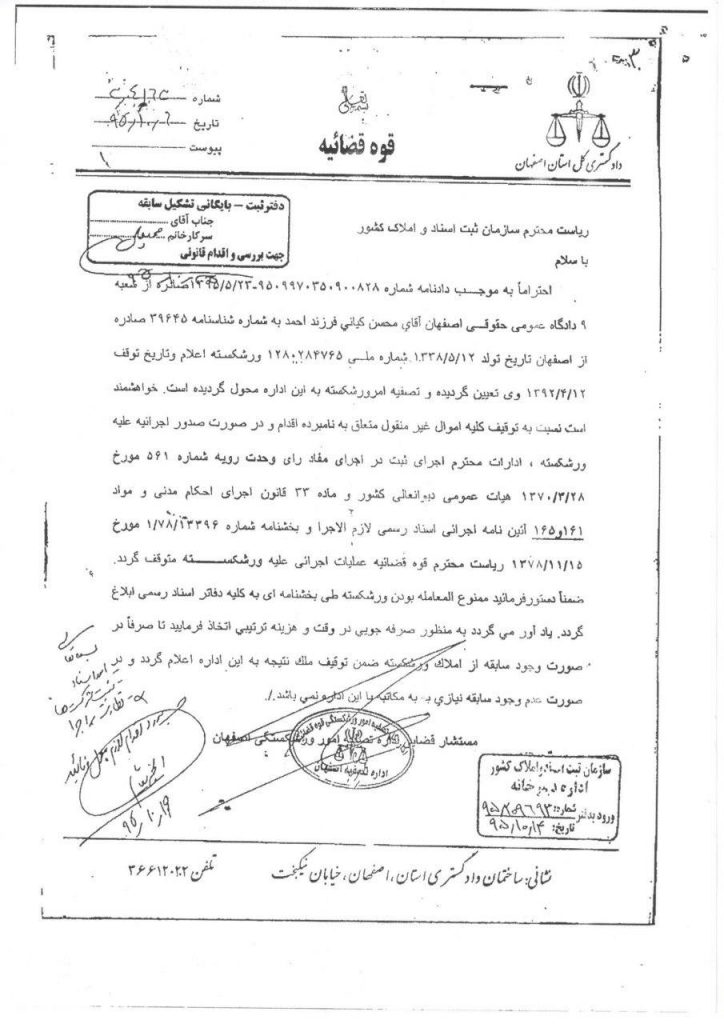 شماره
تاریخ ۹۵/۱۰/۶
پیوست
بسمه تعالی
قوه قضائیه
دادگستری کل استان اصفهان
دفتر ثبت – بایگانی تشکیل سابقه
جناب آقای
سرکار خانم
جهت بررسی و اقدام قانونی
ریاست محترم سازمان ثبت اسناد و املاک کشور
با سلام
احتراماً به موجب دادنامه شماره ۹۵۰۹۹۷۰۳۵۰۹۰۰۸۲۸-۱۳۹۵/۵/۲۳ صادره از شعبه
۹ دادگاه عمومی حقوقی اصفهان آقای محسن کیانی فرزند احمد به شماره شناسنامه ۳۹۶۴۵ صادره
از اصفهان تاریخ تولد ۱۳۳۸/۵/۱۲ شماره ملی ۱۲۸۰۲۸۴۷۶۵ ورشکسته اعلام وتاریخ توقف
۱۳۹۲/۴/۱۲ وی تعیین گردیده و تصفیه امورورشکسته به این اداره محول گردیده است. خواهشمند
است نسبت به توقیف کلیه اموال غیر منقول متعلق به نامبرده اقدام و در صورت صدور اجرائیه علیه
ورشکسته ، ادارات محترم اجرای ثبت در اجرای مفاد رای وحدت رویه شماره ۵۶۱ مورخ
۱۳۷۰/۳/۲۸ هیات عمومی دیوانعالی کشور و ماده ۳۳ قانون اجرای احکام مدنی و مواد
۱۶۱و۱۶۵ آئین نامه اجرائی اسناد رسمی لازم الاجرا و بخشنامه شماره ۱/۷۸/۱۳۳۹۶ مورخ
۱۳۷۸/۱۱/۱۵ ریاست محترم قوه قضائیه عملیات اجرائی علیه ورشکسته متوقف گردد.
ضمناً دستورفرمائید ممنوع المعامله بودن ورشکسته طی بخشنامه ای به کلیه دفاتر اسناد رسمی ابلاغ
گردد. یاد آور می گردد به منظور صرفه جویی در وقت و هزینه ترتیبی اتخاذ فرمایید تا صرفاً در
صورت وجود سابقه از املاک ورشکسته ضمن توقیف ملک نتیجه به این اداره اعلام گردد و در
صورت عدم وجود سابقه نیازی به مکاتبه با این اداره نمی باشد./.
مستشار قضایی اداره تصفیه امور ورشکستگی اصفهان
اداره تصفیه اصفهان
۹۵/۱۰/۱۹
سازمان ثبت اسناد و املاک کشور
اداره دبیرخانه
ورود به دفتر
شماره:
تاریخ: ۹۵/۱۰/۱۴
نشانی: ساختمان دادگستری استان، اصفهان، خیابان نیکبخت
تلفن ۳۶۶۱۲۰۲۲